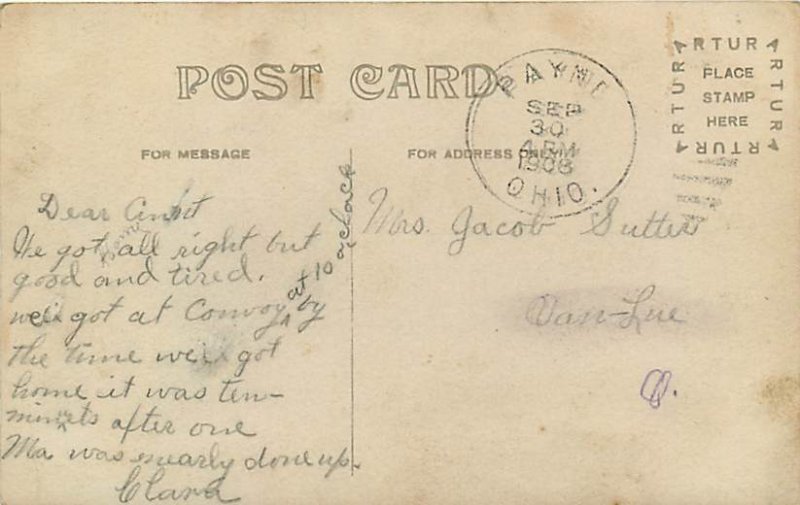 POST CARD
FOR MESSAGE
FOR ADDRESS ONLY
PAYNE
SEP
30
4 PM
1908
OHIO.
ARTURA
PLACE
STAMP
HERE
Dear Aunt
We got home all right but
good and tired.
we got at Convoy at 10 oclock by
the time we got
home it was ten-
minets after one
Ma was nearly done up.
Clara
Mrs. Jacob Sutter
Van-Lue
O.